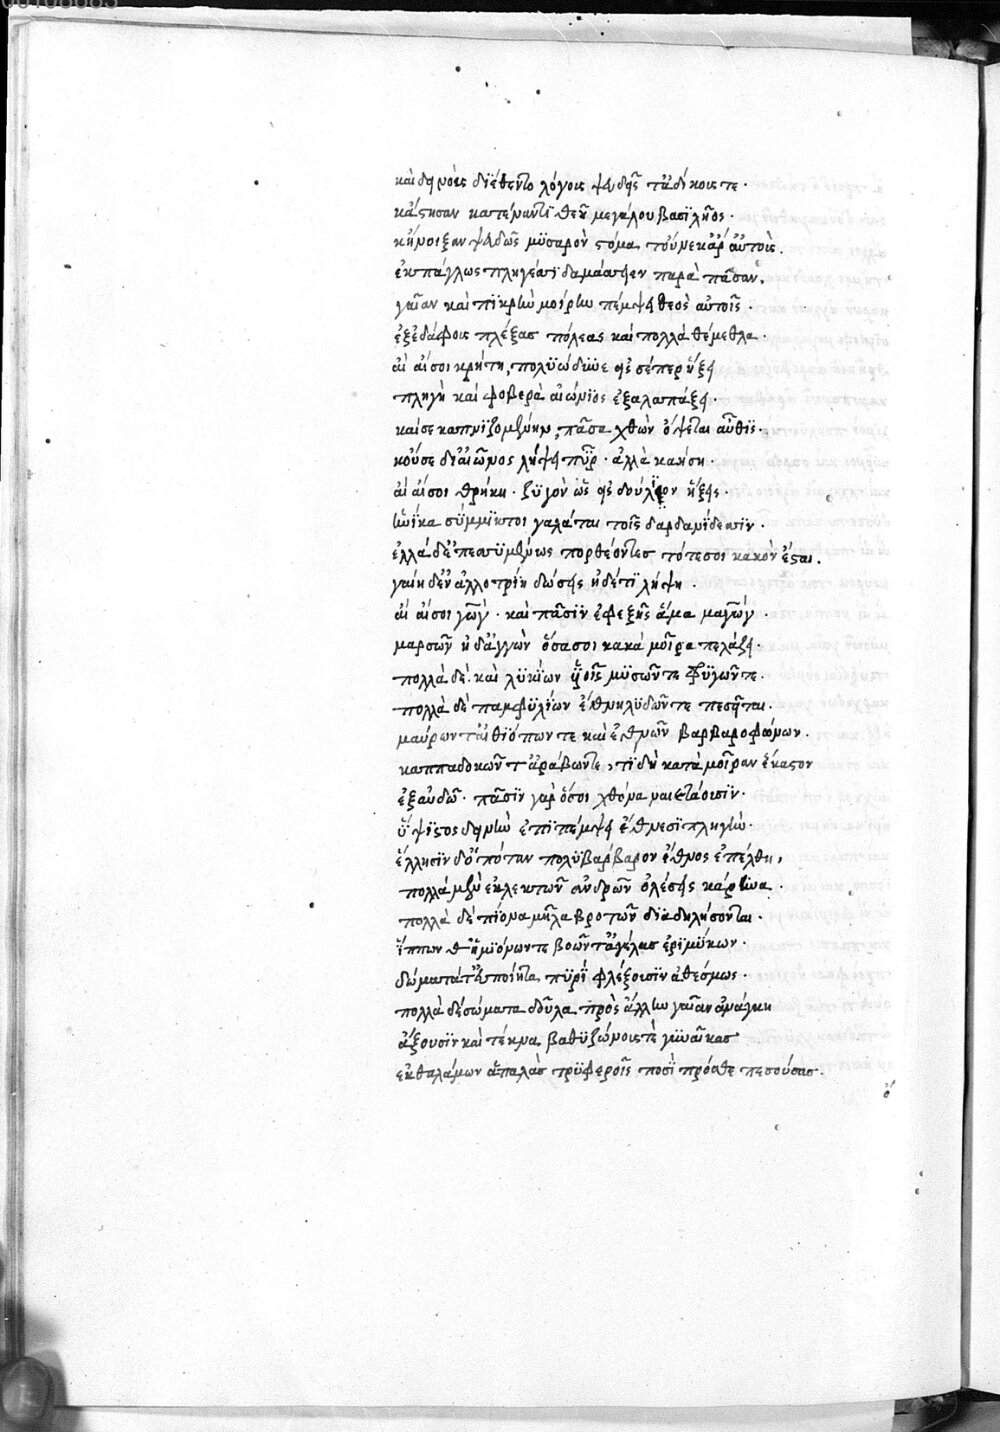 00108685
καὶ δηροὺς διέθεντο λόγους ψευδεῖς τ' ἀδίκους τε.
κάστησαν κατέναντι θεοῦ μεγάλου βασιλῆος.
κήνοιξαν ψευδῶς μυσαρὸν στόμα τοὔνεκ' ἄρ' αὐτοὺς.
ἐκπάγλως πληγέσσι δαμάσσειεν παρὰ πᾶσαν,
γαῖαν καὶ πικρὴν μοίρην πέμψει θεὸς αὐτοῖς.
ἐξ ἐδάφους πλέξας πόλεας καὶ πολλὰ θέμεθλα.
αἲ αἴ σοι κρήτη, πολυώδυνε εἰς σέ περ ἥξει
πληγὴ καὶ φοβερὰ αἰώνιος ἐξαλαπάξει.
καί σε καπνιζομένην, πᾶσα χθὼν ὄψεται αὖθις.
κοὔ σε δι' αἰῶνος λήψει πῦρ. ἀλλὰ καήση.
αἲ αἴ σοι θρήκη. ζυγὸν ὡς εἰς δούλιον ἥξεις.
ἡνίκα σύμμικτοι γαλάται τοῖς δαρδανίδεσσιν.
ἑλλάδ' ἐπεσσυμένως πορθέοντες τότε σοι κακὸν ἔσται.
γαίη δ' ἐν ἀλλοτρίη δώσεις ἠδέ τι λήψη.
αἲ αἴ σοι γὼγ. καὶ πᾶσιν ἐφεξῆς ἅμα μαγώγ.
μαρσῶν ἠδ' ἀγγὼν ὅσα σοι κακὰ μοῖρα πελάζει.
πολλὰ δὲ καὶ λυκίων υἱοῖς μυσῶν τε φυγῶν τε.
πολλὰ δὲ παμφυλίων ἔθνη λυδῶν τε πεσεῖται.
μαύρων τ' αἰθιόπων τε καὶ ἐθνῶν βαρβαροφώνων.
καππαδοκῶν τ' ἀράβων τε, τί δὴ κατὰ μοῖραν ἕκαστον
ἐξαυδῶ. πᾶσιν γὰρ ὅσοι χθόνα ναιετάουσιν.
ὕψιστος δεινὴν ἐπιπέμψει ἔθνεσι πληγὴν.
ἕλλησιν δ' ὁπόταν πολυβάρβαρον ἔθνος ἐπέλθη,
πολλὰ μὲν ἐκλεκτῶν ἀνδρῶν ὀλέσεις κάρηνα.
πολλὰ δὲ πίονα μῆλα βροτῶν διαδηλήσονται.
ἵππων θ' ἡμιόνων τε βοῶν τ' ἀγέλας ἐριμύκων.
δώματά τ' εὐποίητα πυρὶ φλέξουσιν ἀθέσμως.
πολλὰ δὲ σώματα δοῦλα πρὸς ἄλλην γαῖαν ἀνάγκη
ἄξουσιν καὶ τέκνα βαθυζώνους τὲ γυναῖκας
ἐκ θαλάμων ἁπαλὰς τρυφεροῖς ποσὶ πρόσθε πεσούσας.